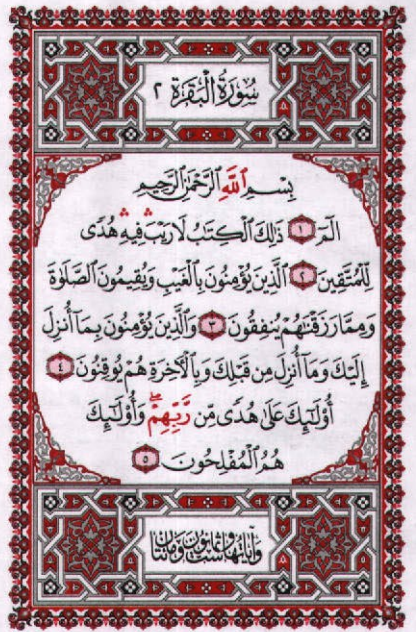 سُورَةُ الْبَقَرَةِ ٢
بِسْمِ اللَّهِ الرَّحْمَٰنِ الرَّحِيمِ
الٓمٓ ١ ذَٰلِكَ الْكِتَابُ لَا رَيْبَ ۛ فِيهِ ۛ هُدًى
لِّلْمُتَّقِينَ ٢ الَّذِينَ يُؤْمِنُونَ بِالْغَيْبِ وَيُقِيمُونَ الصَّلَاةَ
وَمِمَّا رَزَقْنَاهُمْ يُنفِقُونَ ٣ وَالَّذِينَ يُؤْمِنُونَ بِمَا أُنزِلَ
إِلَيْكَ وَمَا أُنزِلَ مِن قَبْلِكَ وَبِالْآخِرَةِ هُمْ يُوقِنُونَ ٤
أُولَٰئِكَ عَلَىٰ هُدًى مِّن رَّبِّهِمْ ۖ وَأُولَٰئِكَ
هُمُ الْمُفْلِحُونَ ٥
وآياتها ست وثمانون ومائتان